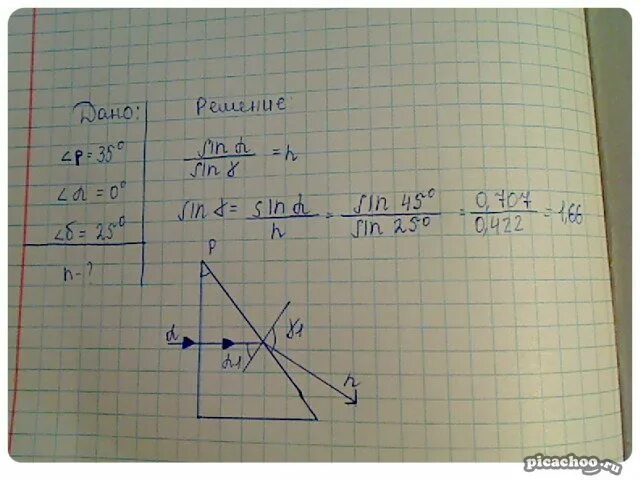 Дано:
∠P = 35°
∠α = 0°
∠б = 25°
n - ?
Решение
sin α / sin γ = n
sin γ = sin α / n = sin 45° / sin 25° = 0,707 / 0,422 = 1,66
P
α
α1
γ1
r
picachoo.ru